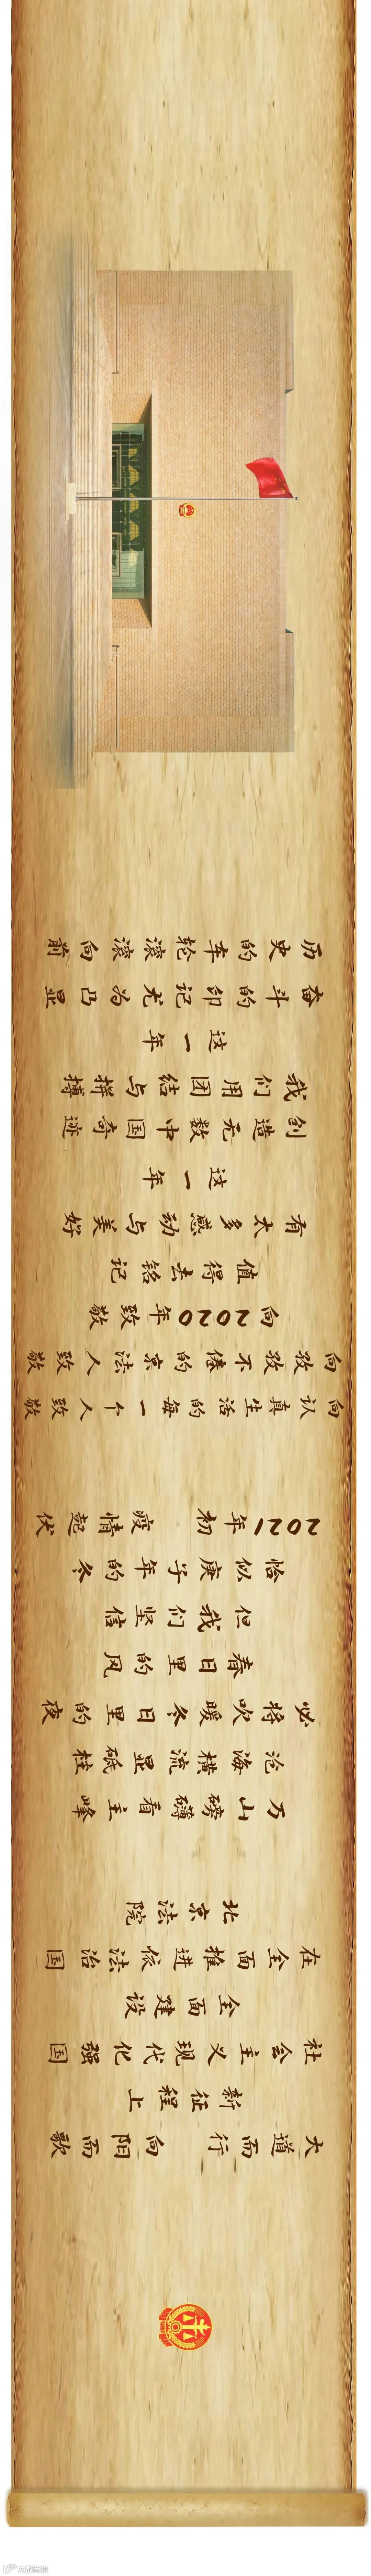 历史的车轮滚滚向前
奋斗的印记尤为凸显
这一年
我们用团结与拼搏
创造无数中国奇迹
这一年
有太多感动与美好
值得去铭记
向2020年致敬
向孜孜不倦的京法人致敬
向认真生活的每一个人致敬
2021年初 疫情起伏
恰似庚子年的冬
但我们坚信
春日里的风
必将吹暖冬日里的夜
沧海横流显砥柱
万山磅礴看主峰
北京法院
在全面推进依法治国
全面建设
社会主义现代化强国
新征程上
大道而行 向阳而歌